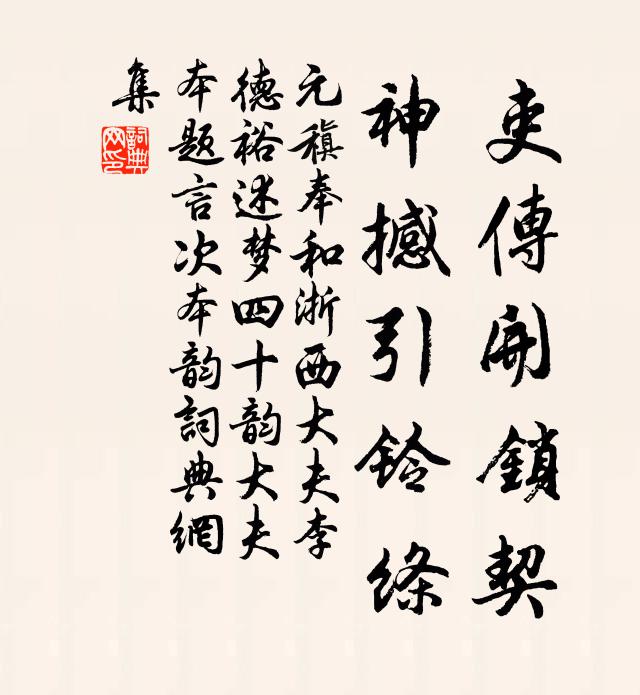 吏傳開鎖契
神撼引鈴絛
元稹奉和浙西大夫李
德裕述梦四十韵大夫
本题言次本韵詞典網
集
詞典網印